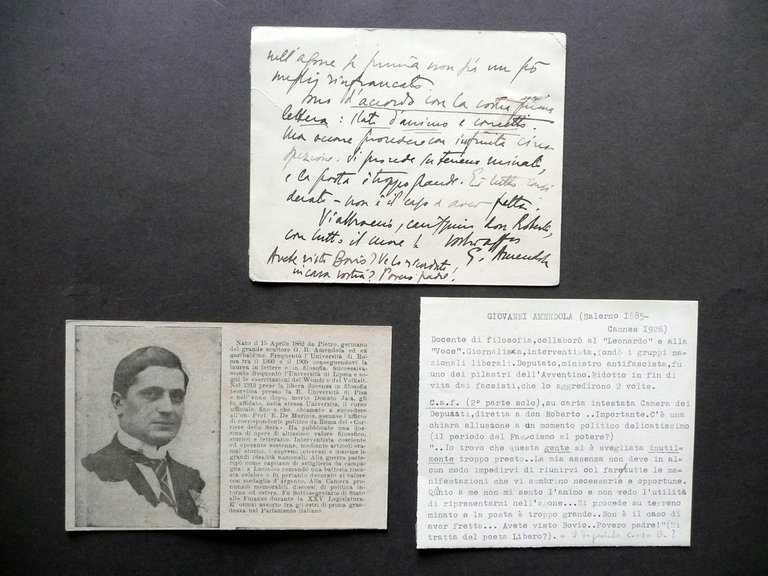 nell'agone di prima non più un pò
meglio rinfrancato.
Sono d'accordo con la vostra ultima
lettera: stato d'animo e concetti.
Ma occorre procedere con infinita circo
spezione. Si procede su terreno minato,
e la posta è troppo grande. E tutto consi
derato - non è il caso di aver fretta.
Vi abbraccio, carissimo don Roberto,
con tutto il cuore.
G. Amendola
Avete visto Bovio? Ve lo ricordate
in casa vostra? Povero padre!
Nato il 15 Aprile 1882 da Pietro, germano
del grande scultore G. B. Amendola ed ex
garibaldino. Frequentò l'Università di Ro-
ma tra il 1900 e il 1905 conseguendovi la
laurea in lettere e in filosofia. Successiva-
mente frequentò l'Università di Lipsia e se-
guì le esercitazioni del Wundt e del Volkelt.
Nel 1913 prese la libera docenza in filosofia
teoretica presso la R. Università di Pisa
e nell'anno dopo, morto Donato Jaia, gli
fu affidato, nella stessa Università, il corso
ufficiale, fino a che, chiamato a succedere
al Prof. E. De Marinis, assunse l'ufficio
di corrispondente politico da Roma del «Cor-
riere della Sera». Ha pubblicato una doz-
zina di opere di altissimo valore filosofico,
storico e letterario. Interventista cosciente
ed operante sostenne, mediante articoli ora-
mai storici, i supremi interessi e insieme le
grandi idealità nazionali. Alla guerra parte-
cipò come capitano di artiglieria da campa-
gna: a Lucinico comandò una batteria rima-
sta celebre e fu pertanto decorato al valore
con medaglia d'argento. Alla Camera pro-
nunziò memorabili discorsi di politica in-
terna ed estera. Fu Sottosegretario di Stato
alle Finanze durante la XXV Legislatura.
E' ormai assorto tra gli astri di prima gran-
dezza nel Parlamento italiano.
GIOVANNI AMENDOLA (Salerno 1885-
Cannes 1926)
Docente di filosofia, collaborò al "Leonardo" e alla
"Voce". Giornalista, interventista, fondò i gruppi na-
zionali liberali. Deputato, ministro antifascista, fu
uno dei pilastri dell'Aventino. Ridotto in fin di
vita dai fascisti, che lo aggredirono 2 volte.
C.a.f. (2° parte solo), su carta intestata Camera dei
Deputati, diretta a don Roberto ..Importante. C'è una
chiara allusione a un momento politico delicatissimo
(il periodo del Fascismo al potere?)
"..Io trovo che questa gente si è svegliata inutil-
mente troppo presto..La mia assenza non deve in al-
cun modo impedirvi di riunirvi col far tutte le ma-
nifestazioni che vi sembrino necessarie e opportune.
Qunto a me non mi sento l'animo e non vedo l'utilità
di ripresentarmi nell'agone...Si procede su terreno
minato e la posta è troppo grande..Non è il caso di
aver fretta... Avete visto Bovio..Povero padre!"(Si
tratta del poeta Libero?).